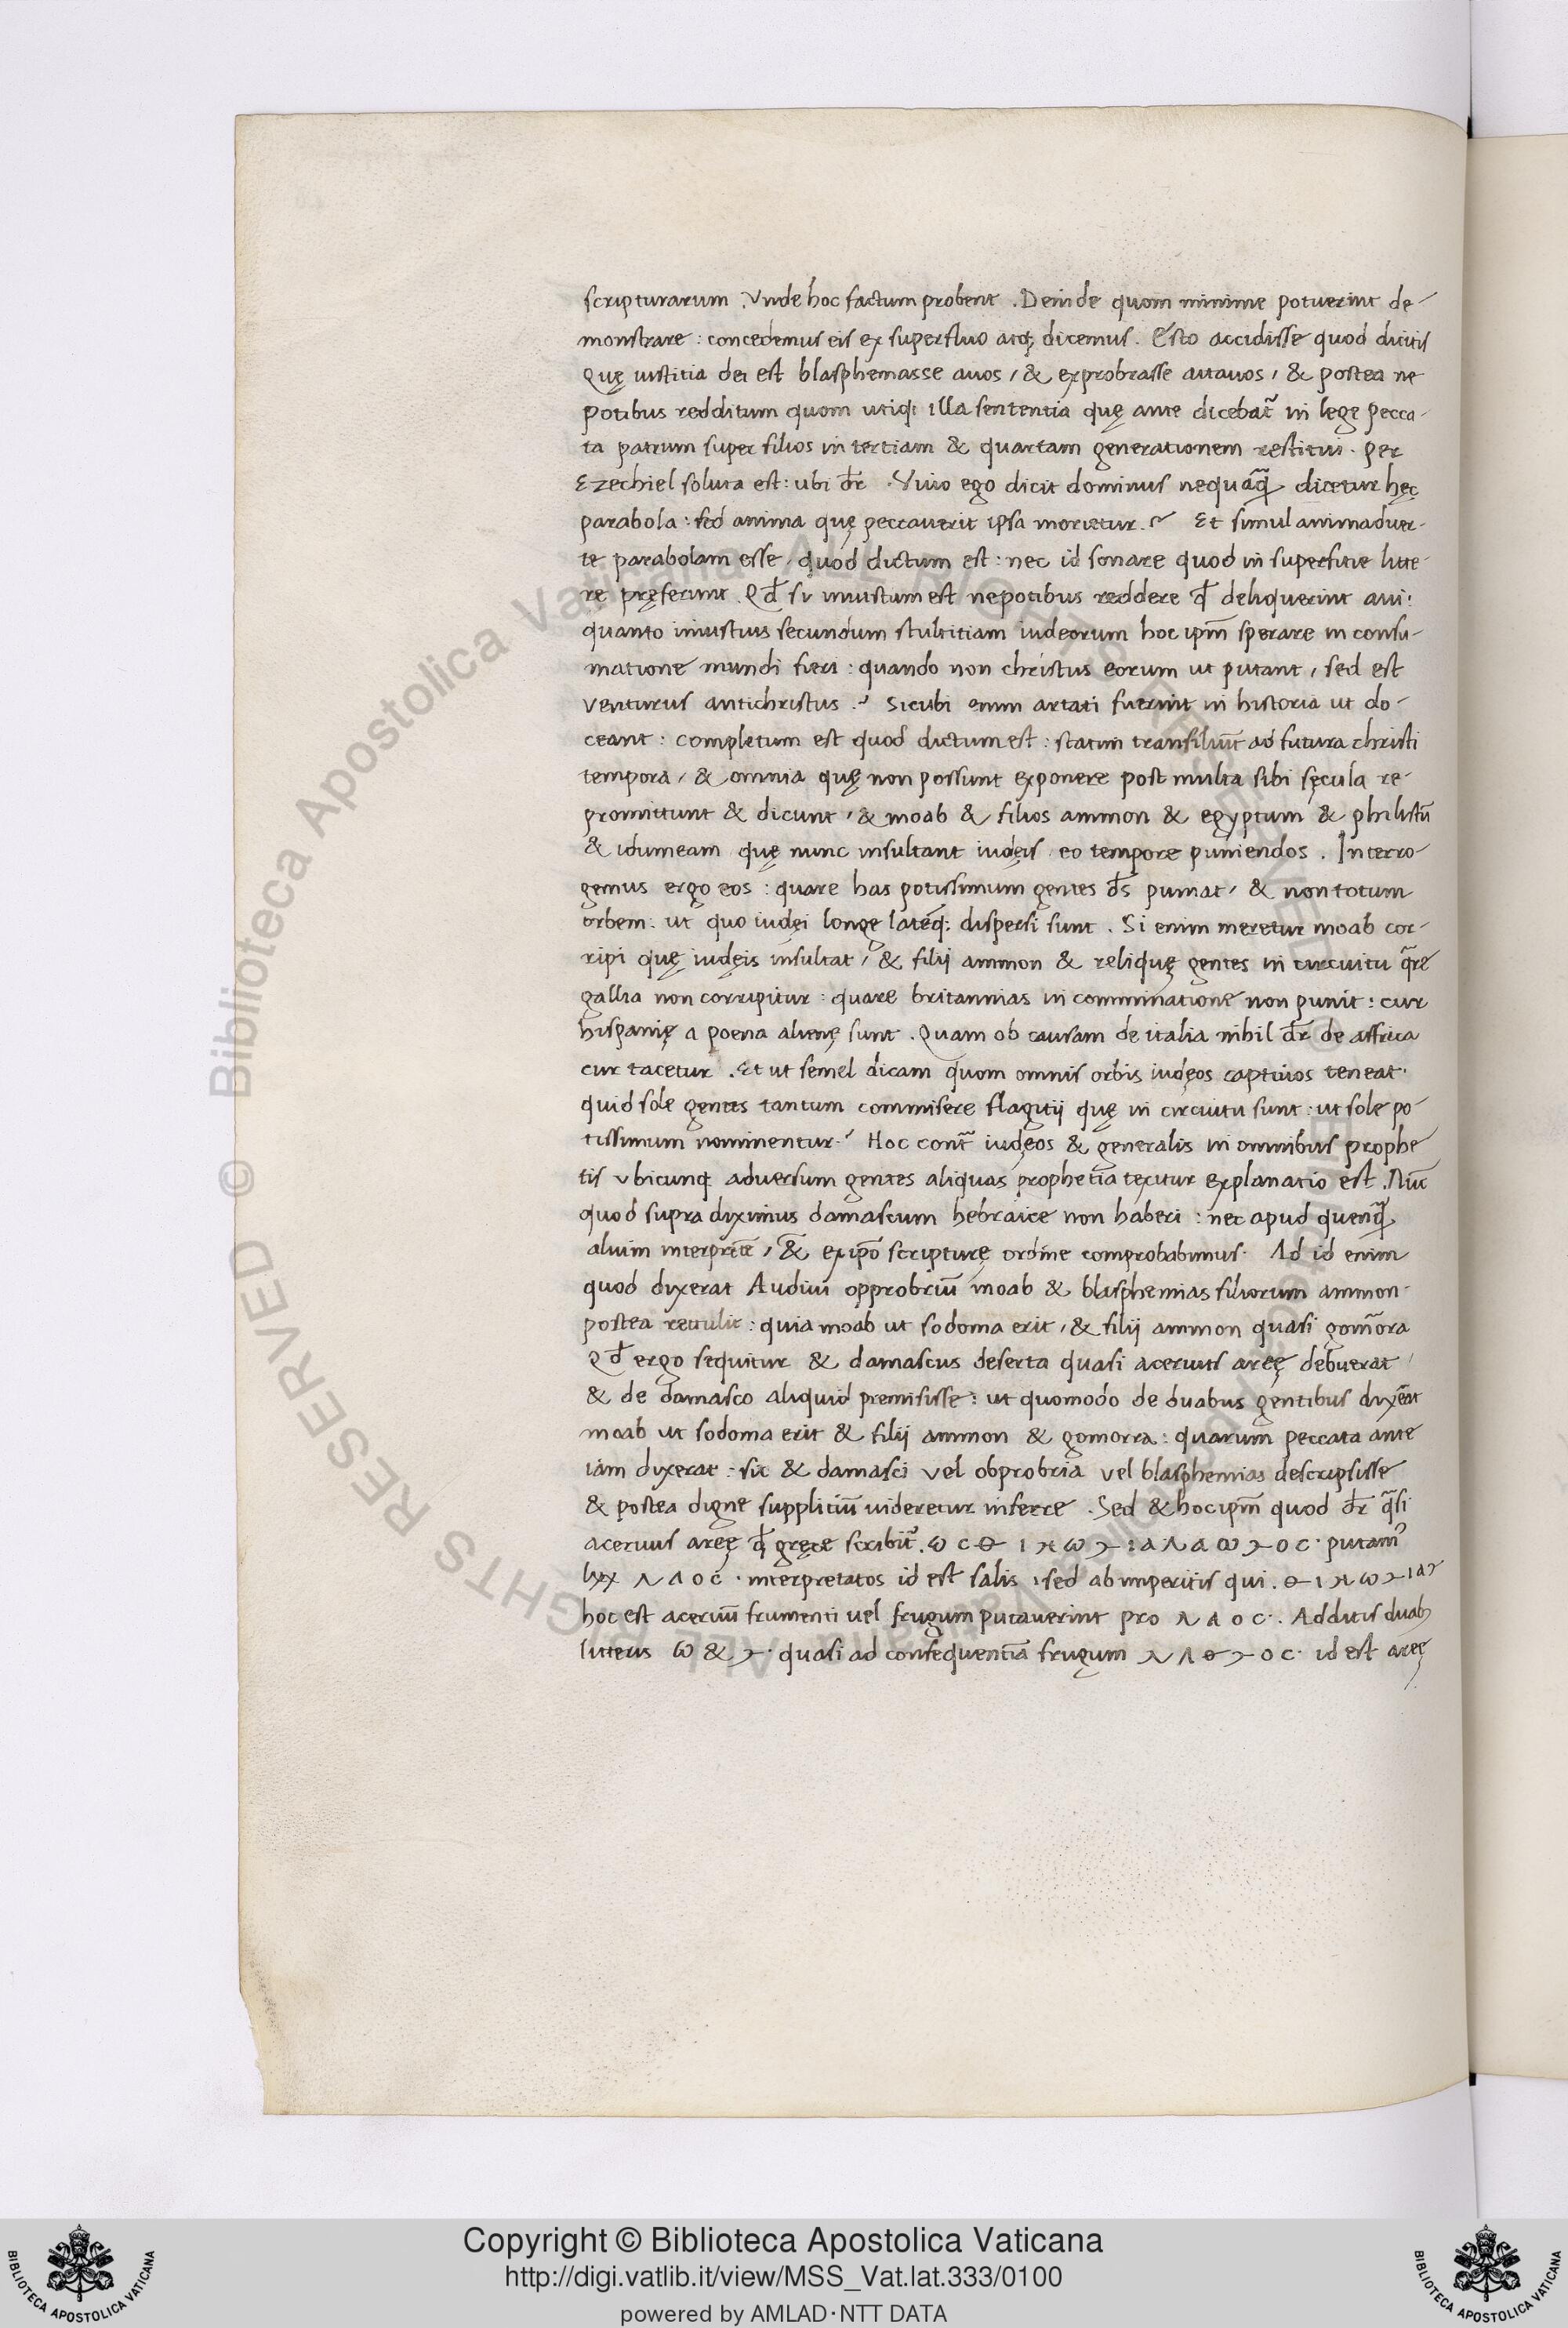 scripturarum . Vnde hoc factum probent . Deinde quom minime potuerint de-
monstrare : concedemus eis ex superfluo atq; dicemus . Esto accidisse quod dicitis
Quę iustitia dei est blasphemasse auos , & exprobrasse attauos , & postea ne
potibus redditum quom utiq; illa sententia quę ante dicebat᷑ in lege pecca-
ta patrum super filios in tertiam & quartam generationem restitui . per
Ezechiel soluta est : ubi dr̄ . Viuo ego dicit dominus nequāꝙ̄ dicetur hęc
parabola : sed anima quę peccauerit ipsa morietur . Et simul animaduer-
te parabolam esse , quod dictum est : nec id sonare quod in superfitie litte-
rę pręferunt . Qd̄ si iniustum est nepotibus reddere qd̄ deliquerint aui :
quanto iniustius secundum stultitiam iudeorum hoc ipm̄ sperare in consu-
matione mundi fieri : quando non christus eorum ut putant , sed est
venturus antichristus . Sicubi enim artati fuerint in historia ut do-
ceant : completum est quod dictum est : statim transiliūt ad futura christi
tempora , & omnia quę non possunt exponere post multa sibi sęcula re-
promittunt & dicunt , & moab & filios ammon & egyptum & philistū
& idumeam quę nunc insultant iudęis eo tempore puniendos . Interro-
gemus ergo eos : quare has potissimum gentes ds̄ puniat , & non totum
orbem . ut quo iudęi longe lateq; dispersi sunt . Si enim meretur moab cor-
ripi quę iudęis insultat , & filij ammon & reliquę gentes in circuitu q̄re
gallia non corripitur : quare britannias in comminatione non punit : cur
hispanię a poena alienę sunt . Quam ob causam de italia nihil dr̄ de affrica
cur tacetur . Et ut semel dicam quom omnis orbis iudęos captiuos teneat .
quid sole gentes tantum commisere flagitij quę in circuitu sunt : ut sole po-
tissimum nominentur . Hoc cont᷑ iudęos & generalis in omnibus prophe
tis vbicunq; aduersum gentes aliquas prophetia texitur explanatio est . Nūc
quod supra diximus damascum hebraice non haberi : nec apud quenꝙ̄
alium interpretē , & ex ipō scripturę ordine comprobabimus . Ad id enim
quod dixerat Audiui opprobriū moab & blasphemias filiorum ammon .
postea rettulit : quia moab ut sodoma erit , & filij ammon quasi gom̄ora
Qd̄ ergo sequitur & damascus deserta quasi aceruus aręę debuerat
& de damasco aliquid premisisse : ut quomodo de duabus gentibus dixēat
moab ut sodoma erit & filij ammon & gomorra : quarum peccata ante
iam dixerat : sic & damasci vel obprobria vel blasphemias descripsisse
& postea digne suppliciū uideretur inferre . Sed & hoc ipm̄ quod dr̄ q̄si
aceruus aręę qd̄ gręce scribit᷑ . ω c θ ι μ ω ν : α λ α ω ν ο c . putam᷒
lxx λ λ ο c . interpretatos id est salis , sed ab imperitis qui . θ ι μ ω ν ι α ν
hoc est aceruū frumenti uel frugum putauerint pro λ α ο c . Additis duab;
litteris ω & ν . quasi ad consequentiā frugum λ λ ο ν ο c . id est aręę
Copyright © Biblioteca Apostolica Vaticana
http://digi.vatlib.it/view/MSS_Vat.lat.333/0100
powered by AMLAD·NTT DATA
BIBLIOTECA APOSTOLICA VATICANA
BIBLIOTECA APOSTOLICA VATICANA